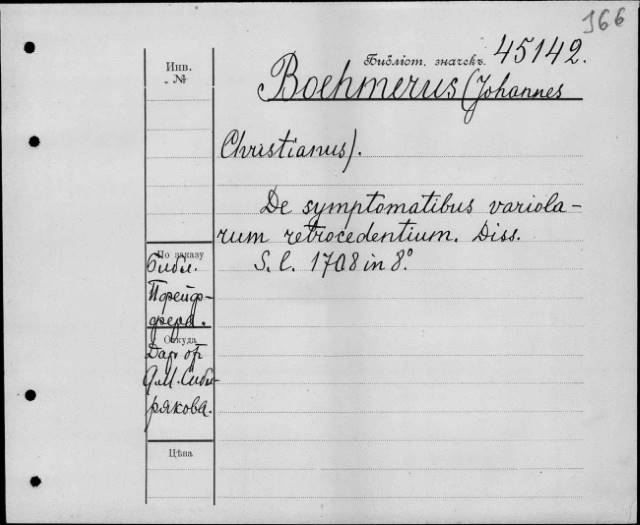 166
Библіот. значекъ. 45142.
Инв. №
Boehmerus (Johannes
Christianus).
De symptomatibus variola-
rum retrocedentium. Diss.
S. l. 1708 in 8°
По заказу
Библ.
Пфейф-
фера.
Откуда
Дар от
А. М. Сиби-
рякова.
Цѣна